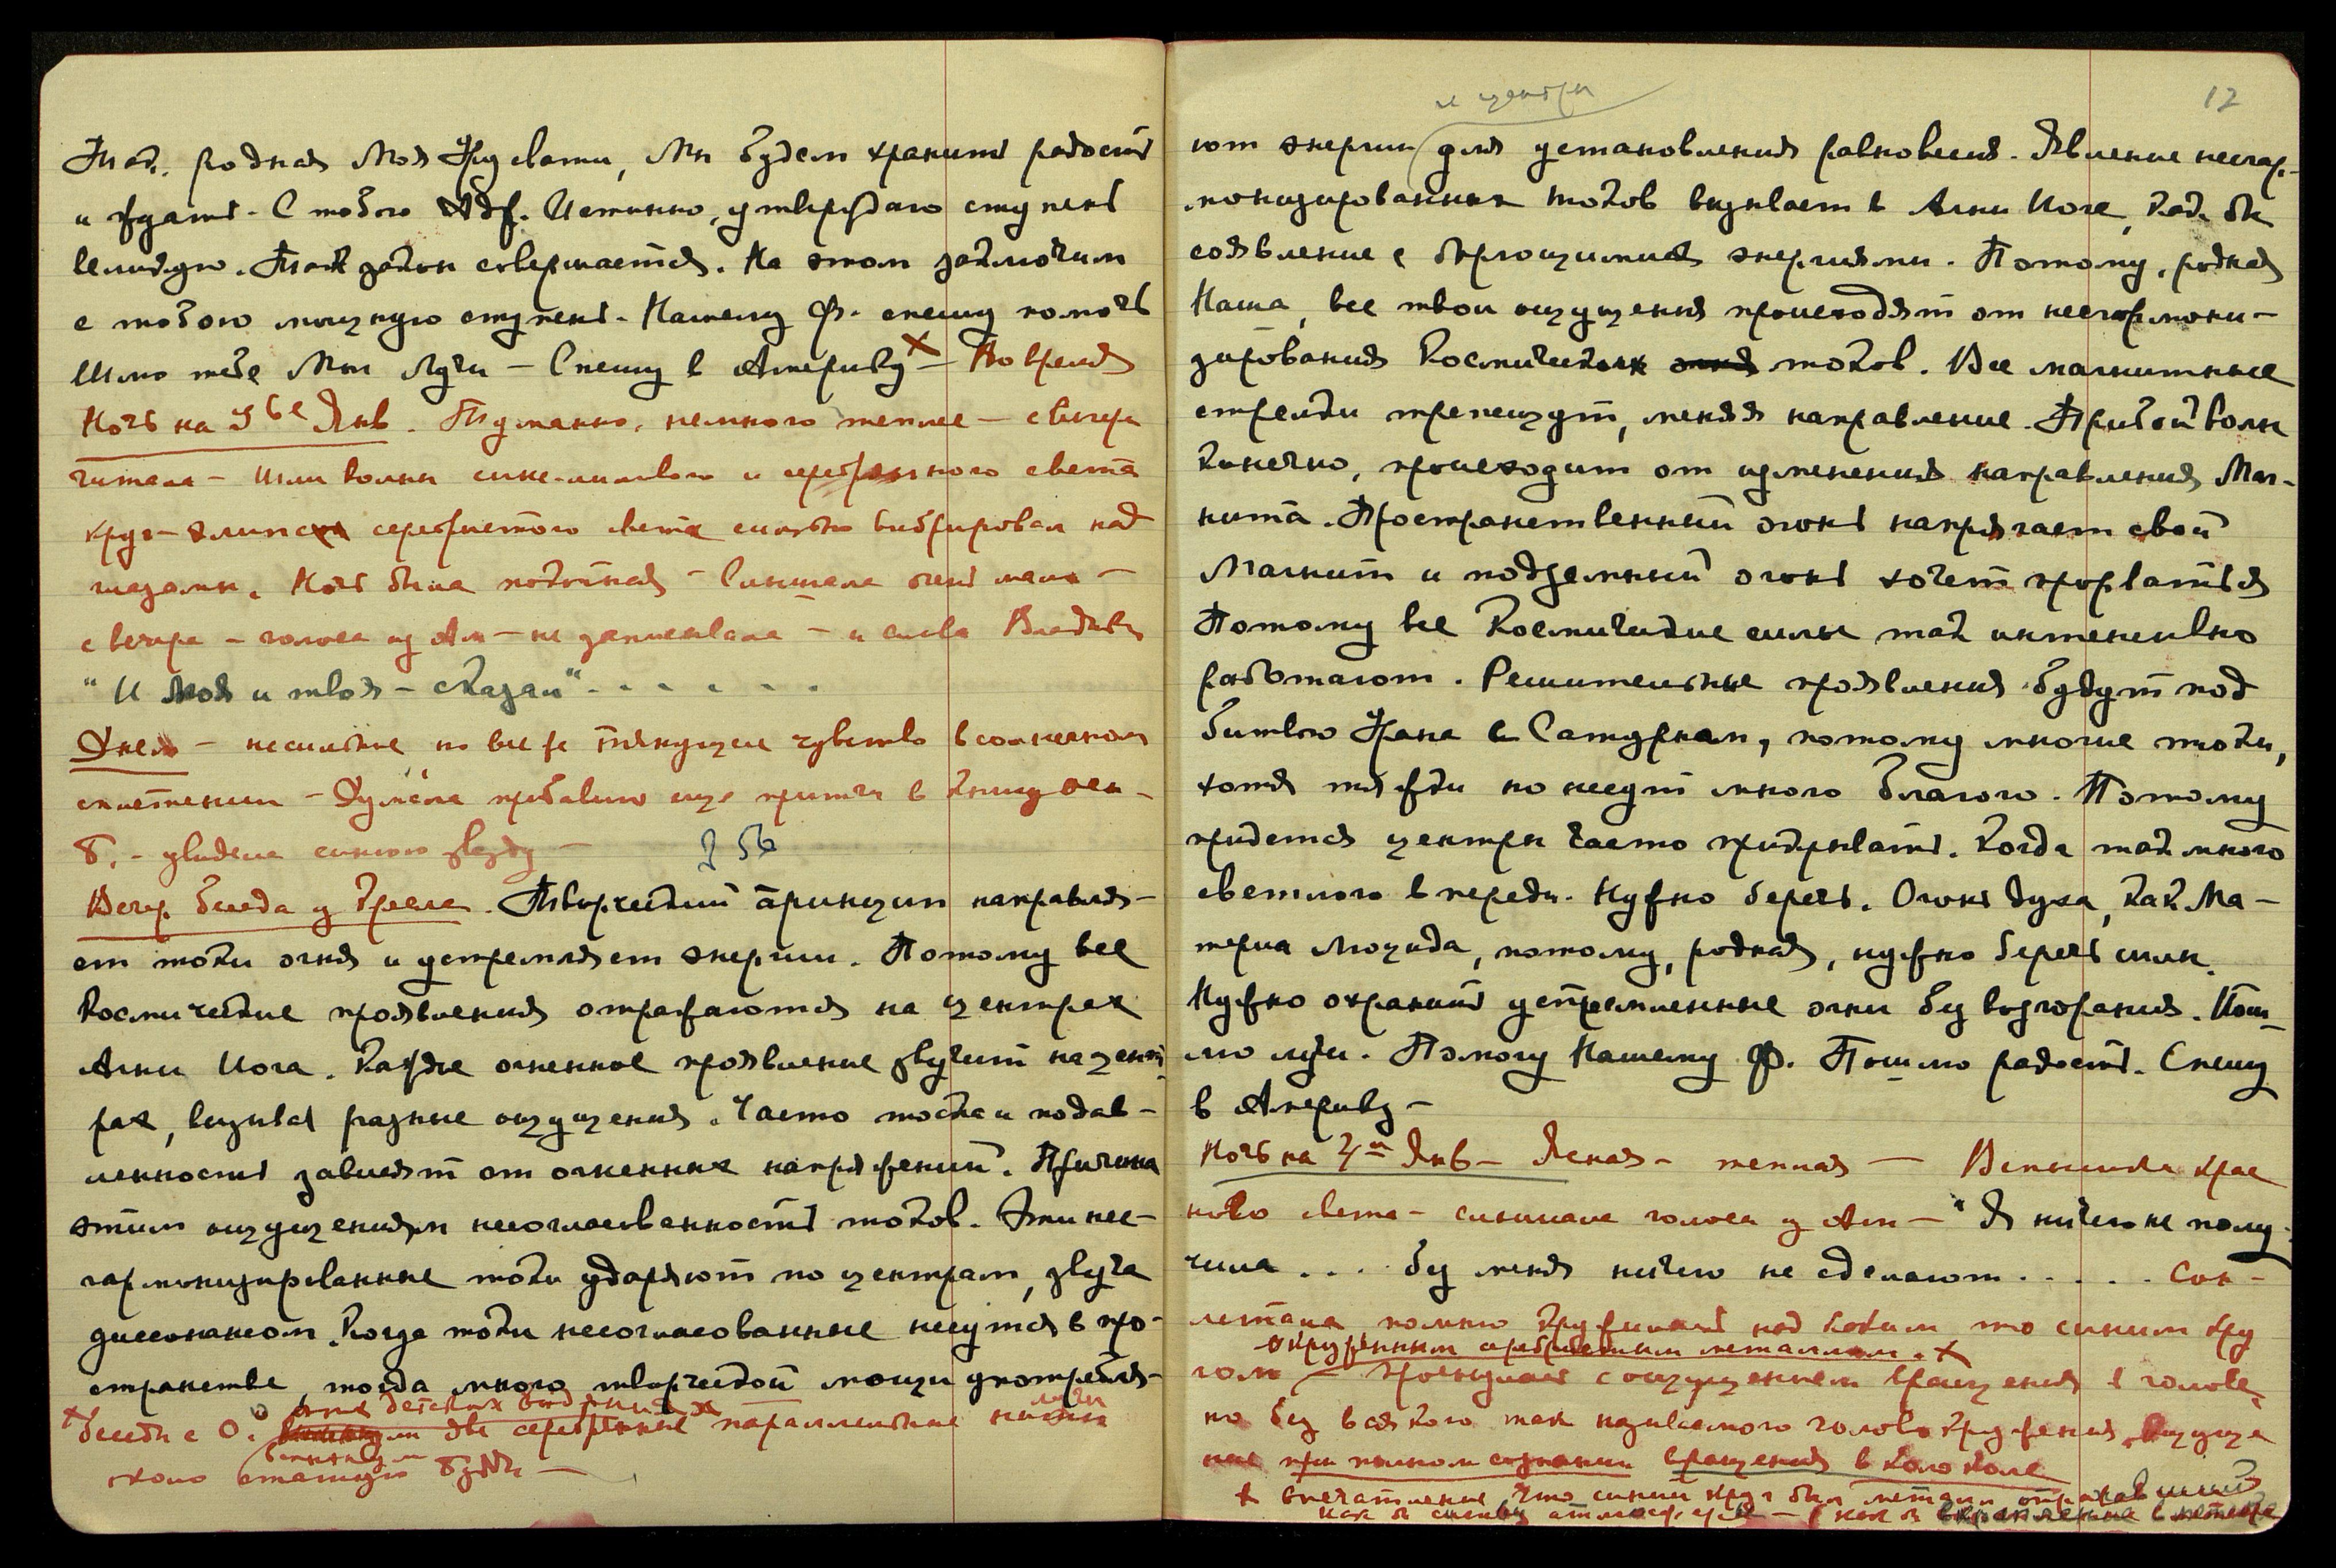 Так, родная Моя Урусвати, Мы будем хранить радость
и ждать. С тобою Адж. Истинно, утверждаю ступень
великую. Так закон совершается. На этом заключим
с тобою мощную ступень. Нашему Ф. спешу помочь
Шлю тебе Мои Лучи – Спешу в Америку × – Во время
Ночь на 3ье Янв. Туманно, немного теплее – с вечера
читала – шли волны сине-лилового и серебряного света
круг – эллипс серебристого света сильно вибрировал над
глазами. Ночь была покойная – Слышала очень мало –
с вечера – голоса из Ам – не записывала – и слова Владыки
"И Моя и твоя – сказал" . - - - - -
Днем – несильное но все же тянущее чувство в солнечном
сплетении – Думала прибавить еще притчи в Книгу осн
Б. – увидела синюю звезду –
Вечер. Беседа у Кресла. Творческий принцип направля-
ет токи огня и устремляет энергии. Потому все
Космические проявления отражаются на центрах
Агни Йога. Каждое огненное проявление звучит на цент
рах, вызывая разные ощущения. Часто тоска и подав-
ленность зависят от огненных напряжений. Причина
этим ощущениям несогласованность токов. Эти несо-
гармонизированные токи ударяют по центрам, звуча
диссонансом. Когда токи несогласованные несутся в про-
странстве, тогда много творческой мощи употребля-
× беседы с О. две серебряные параллельные нити
лучи
около статую Будды –
12
и центры
ют энергии для установления равновесия. Явление несгар-
монизированных токов вызывает в Агни Йоге, как бы
соявление с борющимися энергиями. Потому, родная
Наша, все твои ощущения происходят от несгармони-
зирования Космических токов. Все магнитные
стрелки трепещут, меняя направление. Прибой волн
конечно, происходит от изменения направления Маг-
нита. Пространственный огонь напрягает свой
Магнит и подземный огонь хочет прорваться
Потому все Космические силы так интенсивно
работают. Решительные проявления будут под
битвою Урана с Сатурном, потому многие токи,
хотя тяжки но несут много благого. Потому
придется центры часто прикрывать. Когда так много
светлого впереди. Нужно беречь. Огонь духа, как Ма-
терия Люцида, потому, родная, нужно беречь силы.
Нужно охранить устремленные огни без возгорания. Пош
лю лучи. Помогу Нашему Ф. Пошлю радость. Спешу
в Америку –
Ночь на 4ю Янв – Ясная – теплая – Вспышка крас
ного света – слышала голоса из Ам – "Я ничего не полу
чила . . . . без меня ничего не сделают . . . . . Сон –
летала помню кружилась над каким то синим кру
окруженным серебристым металлом. ×
гом – проснулась с ощущением вращения в голове,
но без всякого так называемого головокружения. Ощуще
ние при полном сознании вращения в колоколе
× впечатление, что синий круг был металл отражавший
как бы синеву атмосферы –